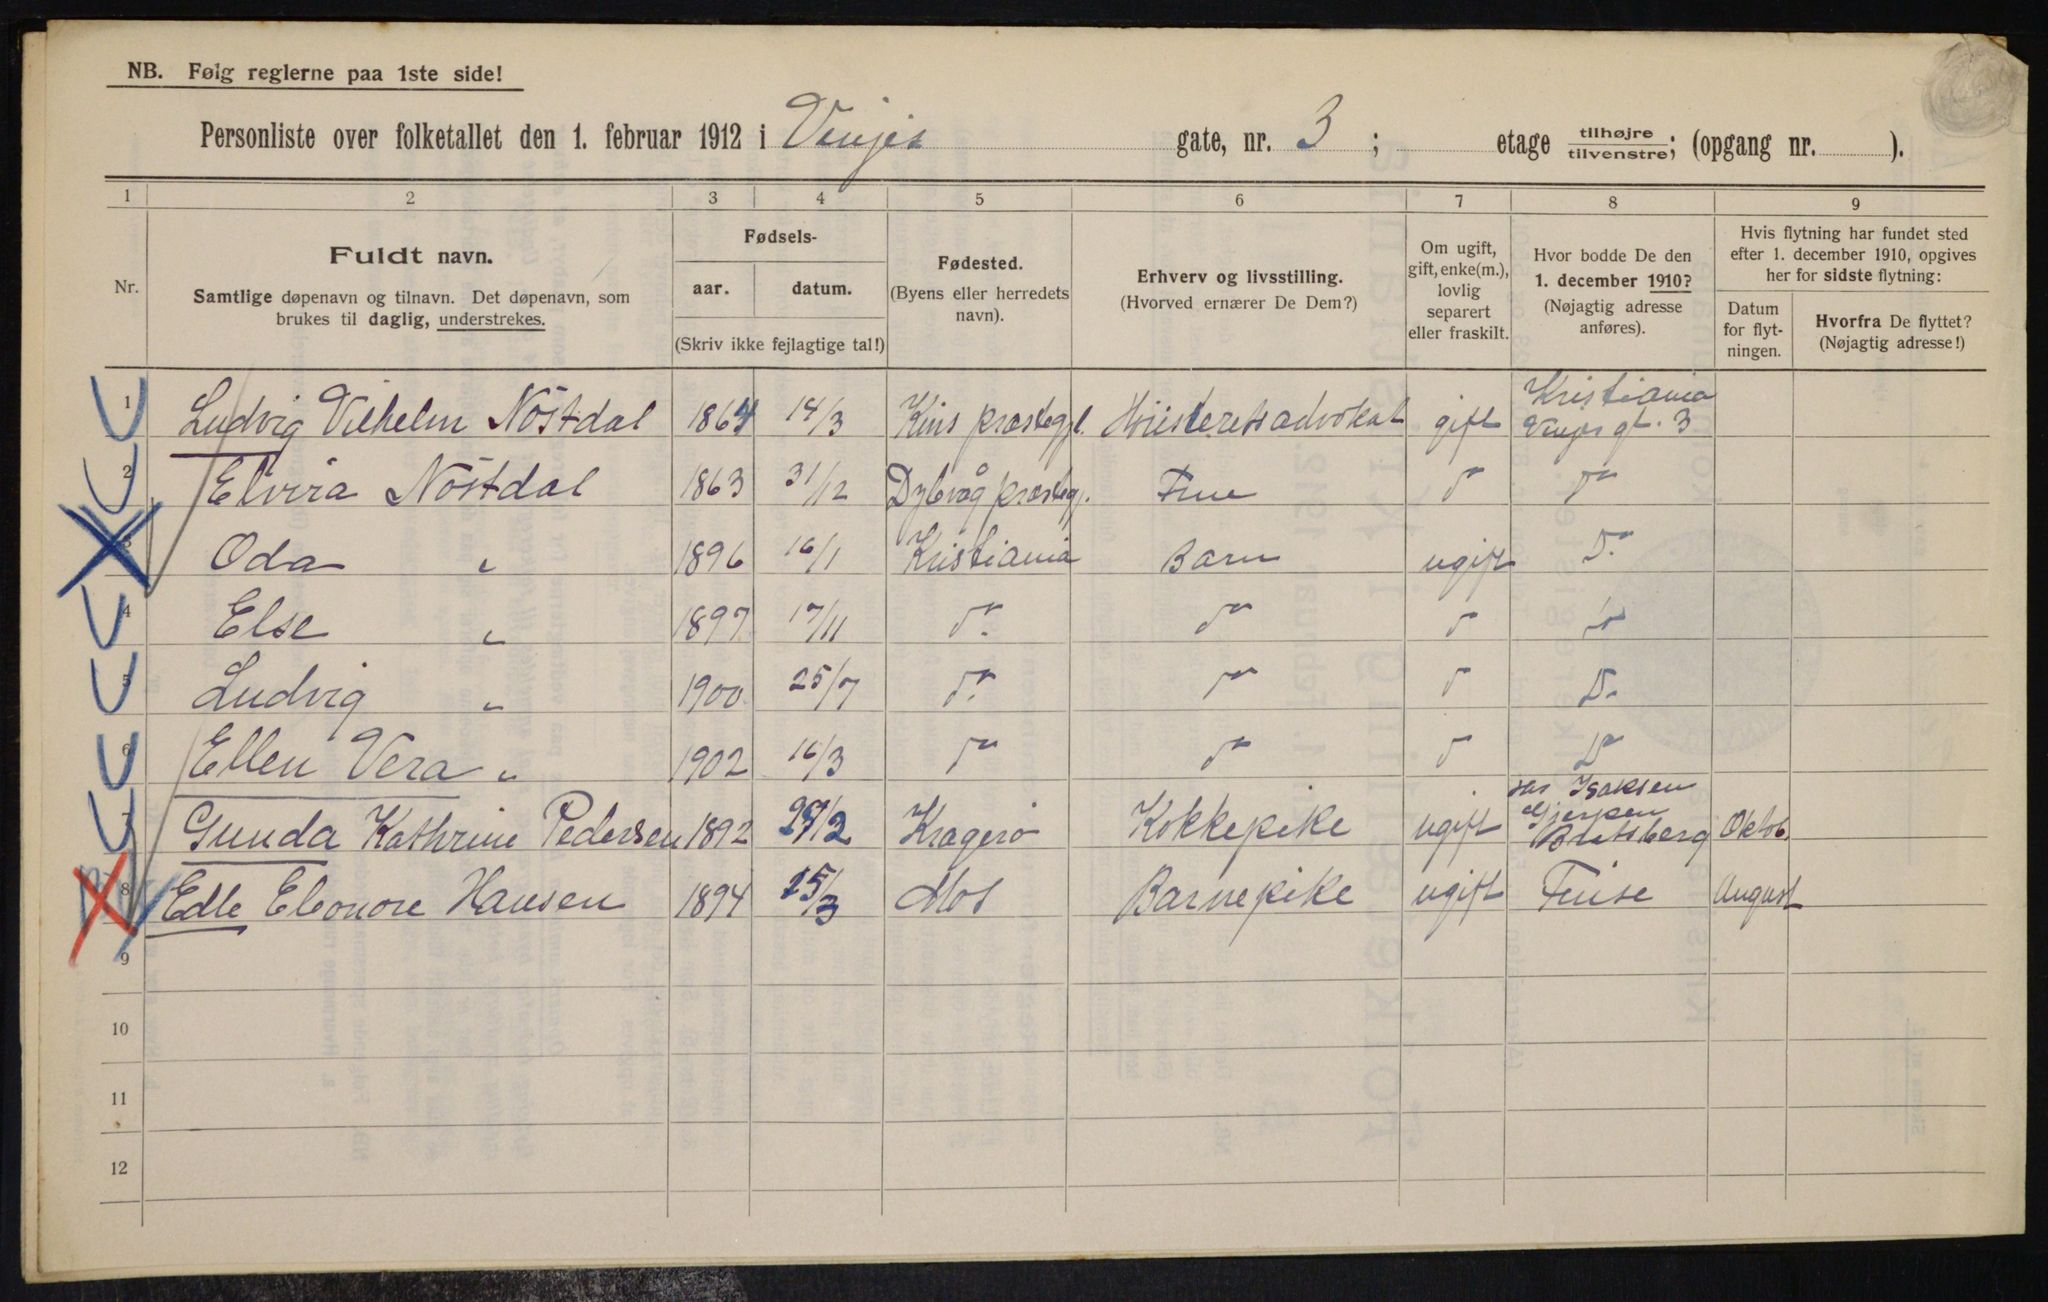 NB. Følg reglerne paa 1ste side!
Personliste over folketallet den 1. februar 1912 i Venjes gate, nr. 3 ; etage tilhøjre/tilvenstre; (opgang nr. ).
1 2 3 4 5 6 7 8 9
Nr.
Fuldt navn.
Samtlige døpenavn og tilnavn. Det døpenavn, som
brukes til daglig, understrekes.
Fødsels-
aar. datum.
(Skriv ikke fejlagtige tal!)
Fødested.
(Byens eller herredets
navn).
Erhverv og livsstilling.
(Hvorved ernærer De Dem?)
Om ugift,
gift, enke(m.),
lovlig
separert
eller fraskilt.
Hvor bodde De den
1. december 1910?
(Nøjagtig adresse
anføres).
Hvis flytning har fundet sted
efter 1. december 1910, opgives
her for sidste flytning:
Datum
for flyt-
ningen.
Hvorfra De flyttet?
(Nøjagtig adresse!)
1 Ludvig Vilhelm Nöstdal 1864 14/3 Kins præstegjl. Höiesteretsadvokat gift Kristiania
Venjes gt. 3
2 Elvira Nöstdal 1863 31/12 Dybvåg præstegj. Frue do do
3 Oda " 1896 16/1 Kristiania Barn ugift Do.
4 Else " 1897 17/11 do. do do do
5 Ludvig " 1900 25/7 do. do do Do.
6 Ellen Vera " 1902 16/3 do do do Do
7 Gunda Kathrine Pedersen 1892 /2 Kragerö Kokkepike ugift Isaksen
Gjerpen
Bratsberg Oktob.
8 Edle Eleonore Hansen 1894 25/3 Mos Barnepike ugift August
9
10
11
12